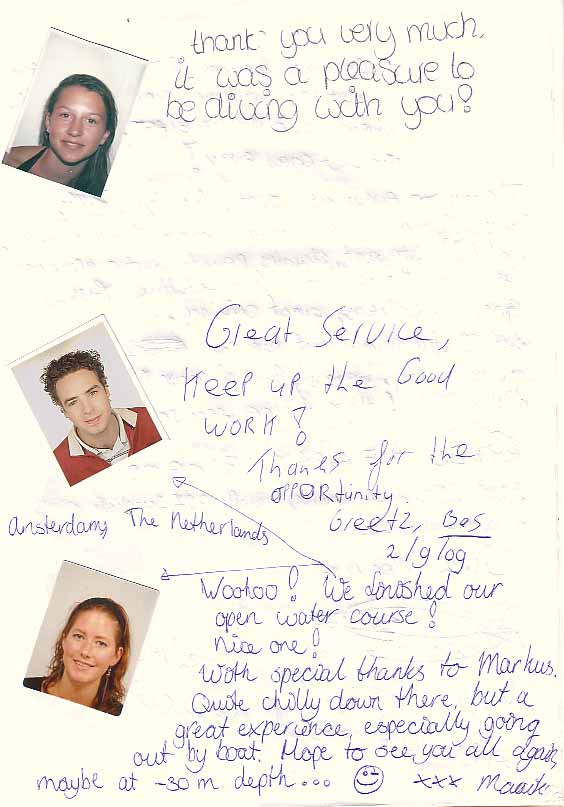 thank you very much.
it was a pleasure to
be diving with you!
Great Service,
Keep up the Good
WORK!
Thanks for the
OPPORtunity.
Greetz, Bas
2/9/09
Amsterdam, The Netherlands
Woohoo! We finished our
open water course!
nice one!
With special thanks to Markus.
Quite chilly down there, but a
great experience, especially going
out by boat. Hope to see you all again,
maybe at -30 m depth... xxx